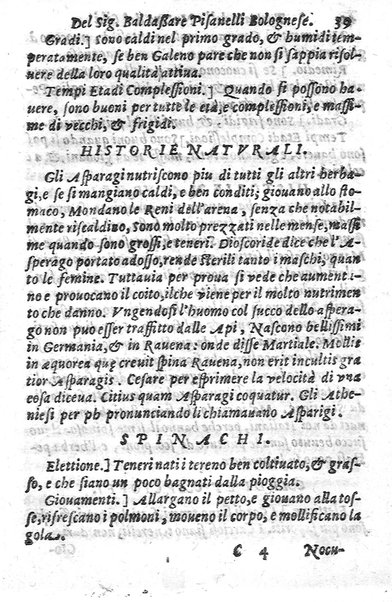 Del Sig. Baldaßare Pisanelli Bolognese. 39
Gradi.] sono caldi nel primo grado, & humidi tem-
peratamente, se ben Galeno pare che non si sappia risol-
uere della loro qualità attiua.
Tempi Etadi Complessioni.] Quando si possono ha-
uere, sono buoni per tutte le età, e complessioni, e massi-
me di vecchi, & frigidi.
HISTORIE NATVRALI.
Gli Asparagi nutriscono piu di tutti gli altri herba-
gi, e se si mangiano caldi, e ben conditi; giouano allo sto-
maco, Mondano le Reni dell'arena, senza che notabil-
mente riscaldino, sono molto prezzati nelle mense, massi
me quando sono grossi, e teneri. Dioscoride dice che l'A-
sperago portato adosso, rende sterili tanto i maschi, quan
to le femine. Tuttauia per proua si vede che aument i-
no e prouocano il coito, ilche viene per il molto nutrimen
to che danno. Vngendosi l'huomo col succo dello aspera-
go non puo esser traffitto dalle Api, Nascono bellissimi
in Germania, & in Rauena: onde disse Martiale. Mollis
in æquorea que creuit spina Rauena, non erit incultis gra
tior Asparagis. Cesare per esprimere la velocità di vna
cosa diceua. Citius quam Asparagi coquatur. Gli Athe-
niesi per ph pronunciando li chiamauano Aspharigi.
SPINACHI.
Elettione.] Teneri nati i tereno ben coltiuato, & gras-
so, e che siano un poco bagnati dalla pioggia.
Giouamenti.] Allargano il petto, e giouano alla tos-
se, rifrescano i polmoni, moueno il corpo, e mollificano la
gola.
C 4 Nocu-